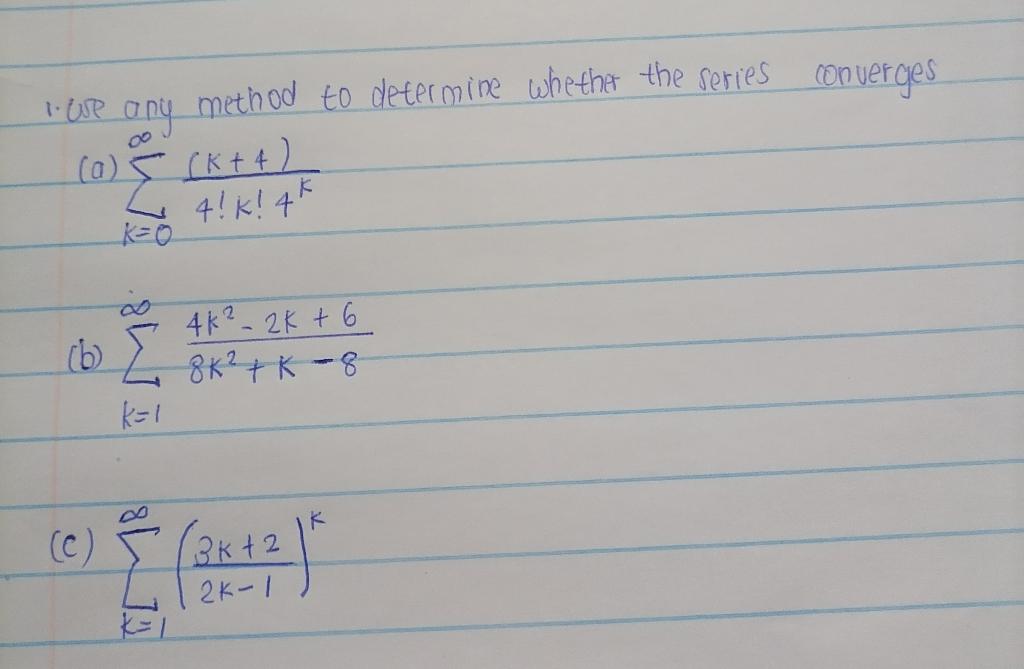 1. Use any method to determine whether the series converges
(a) ∞ Σ k=0 (k+4) / 4! k! 4^k
(b) ∞ Σ k=1 4k² - 2k + 6 / 8k² + k - 8
(c) ∞ Σ k=1 (3k+2 / 2k-1)^k